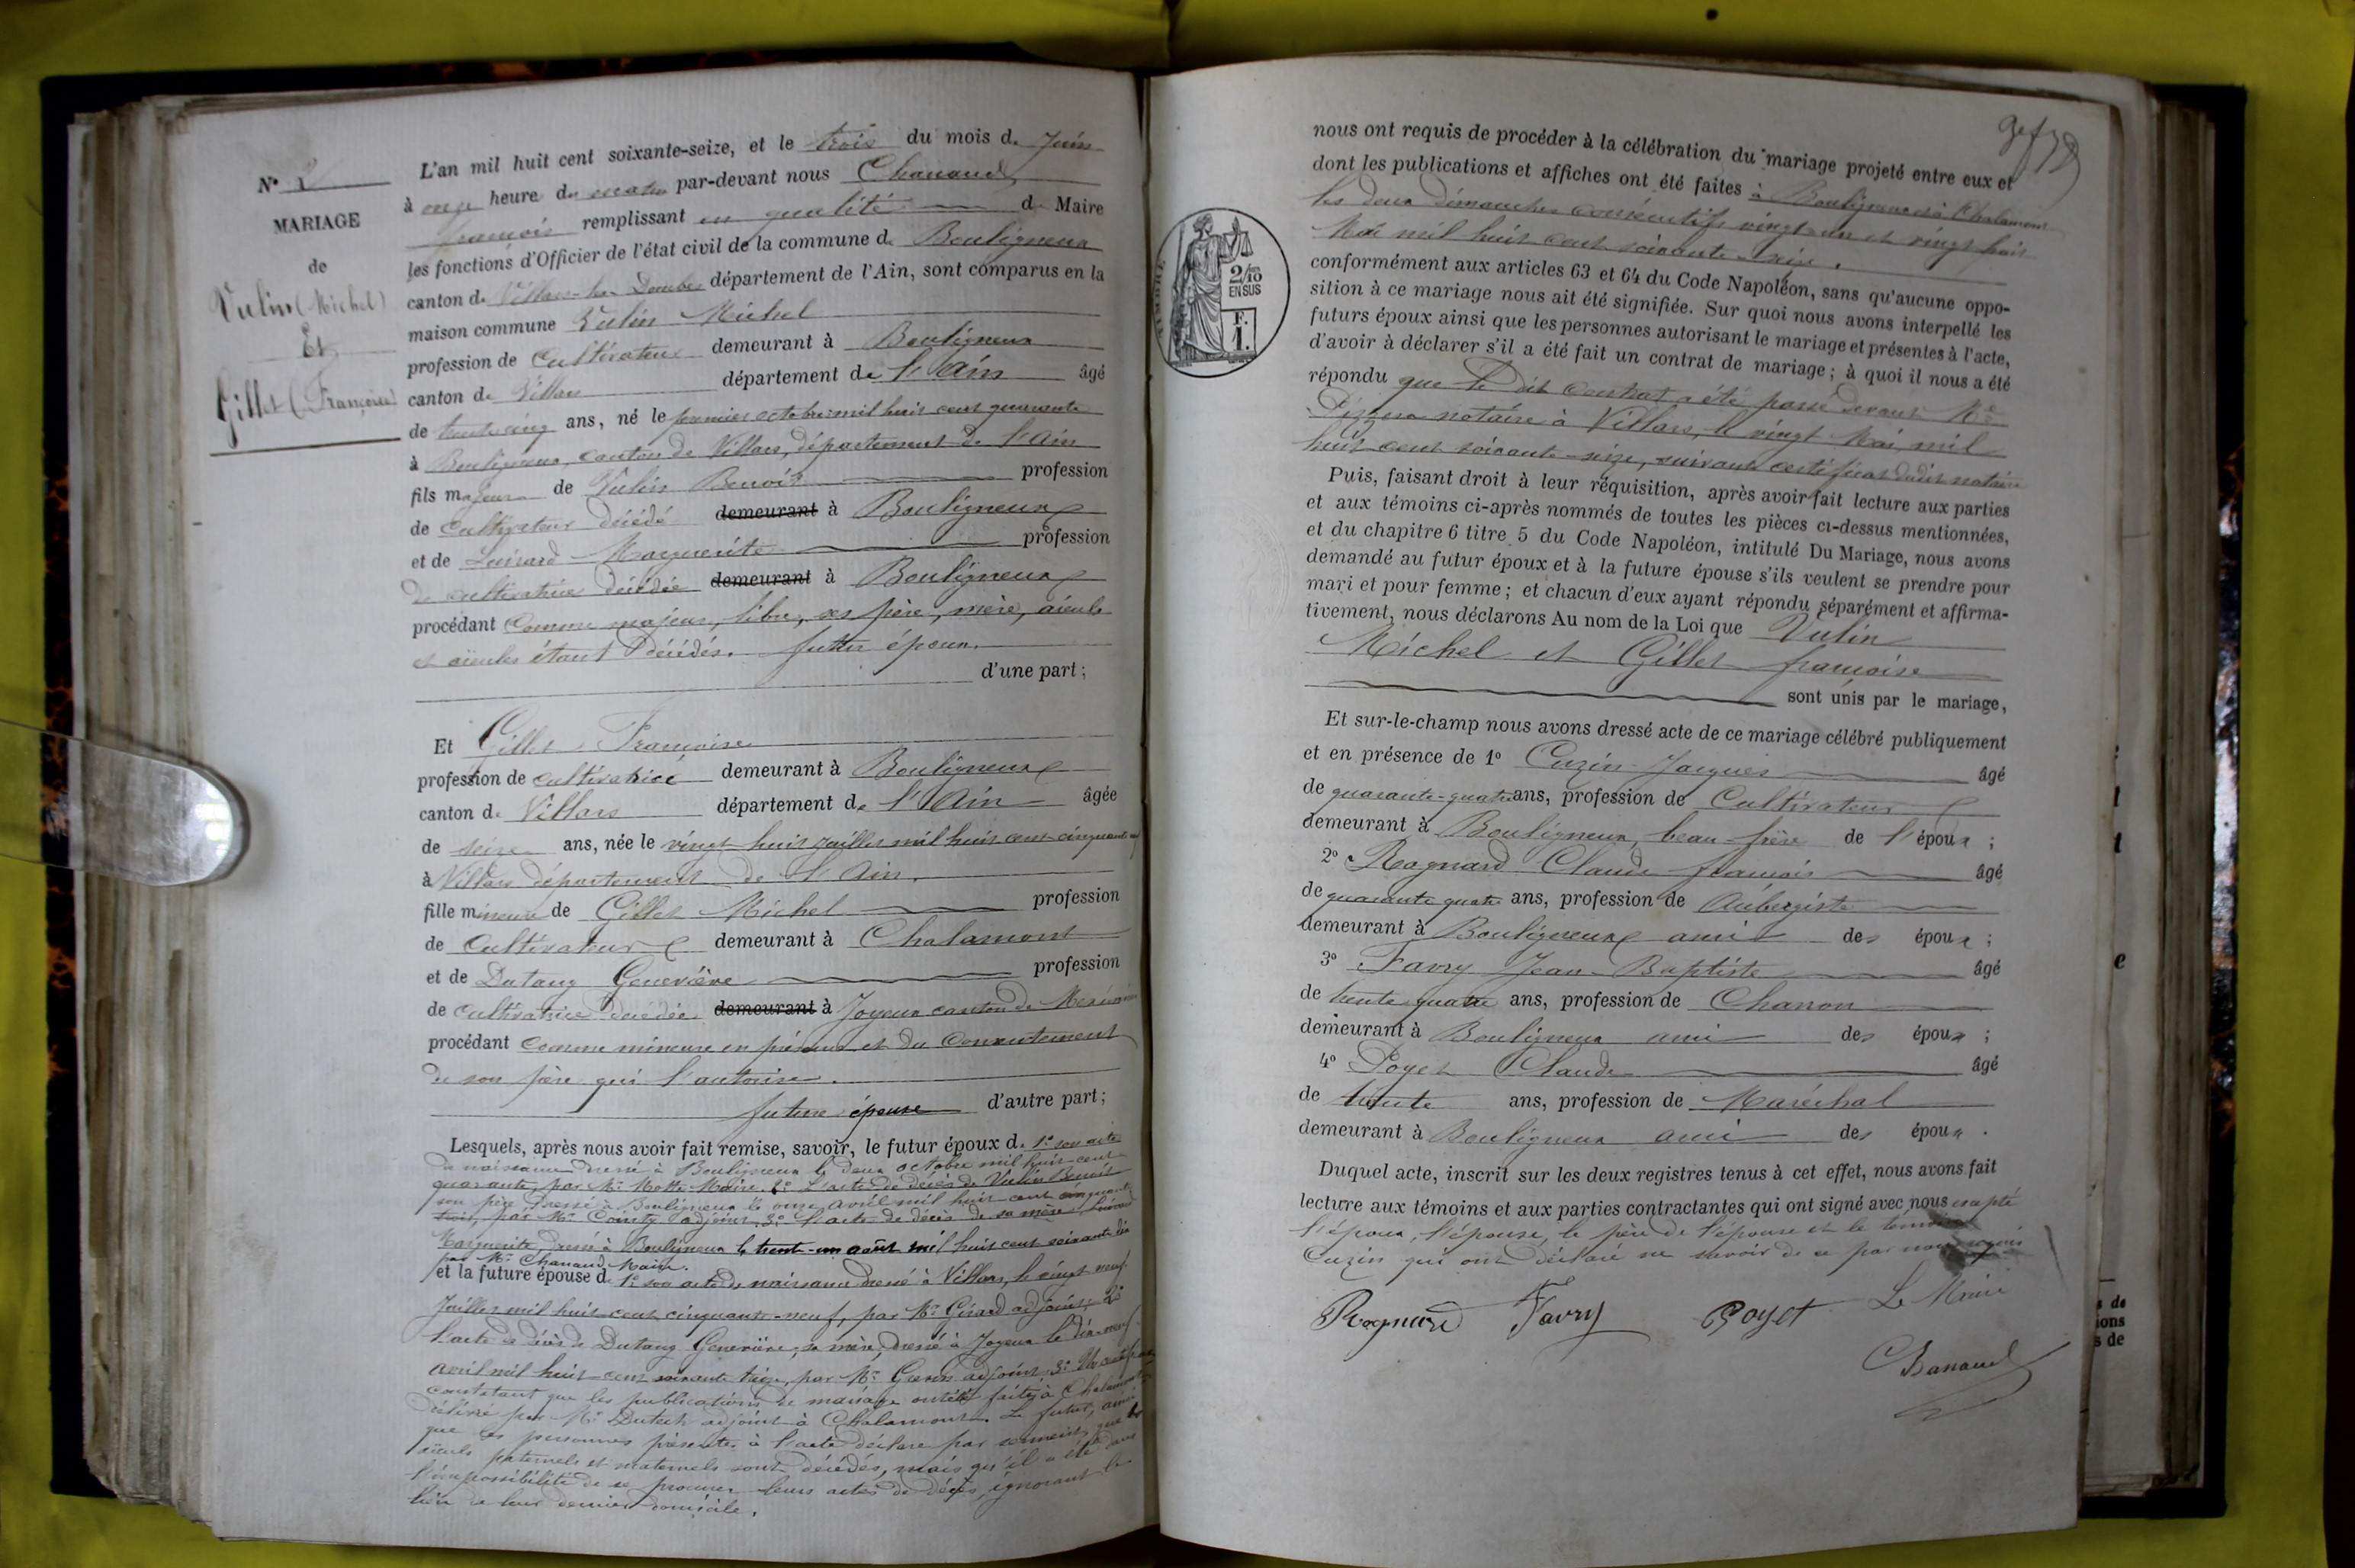 N° 1
MARIAGE
de
Vulin (Michel)
Et
Gillet (Françoise)
L'an mil huit cent soixante-seize, et le trois du mois de Juin
à onze heure du matin par-devant nous Chanaud
françois remplissant en qualité de Maire
les fonctions d'Officier de l'état civil de la commune de Bouligneux
canton de Villars-les-Dombes département de l'Ain, sont comparus en la
maison commune Vulin Michel
profession de Cultivateur demeurant à Bouligneux
canton de Villars département de l'Ain âgé
de trente cinq ans, né le premier octobre mil huit cent quarante
à Bouligneux, canton de Villars, département de l'Ain
fils majeur de Vulin Benoit profession
de Cultivateur décédé demeurant à Bouligneux
et de Marguerite profession
de cultivatrice décédée demeurant à Bouligneux
procédant Comme majeur, libre, ses père, mère, aïeuls
et aïeules étant décédés. futur époux.
d'une part;
Et Gillet Françoise
profession de cultivatrice demeurant à Bouligneux
canton de Villars département de l'Ain âgée
de seize ans, née le vingt huit juillet mil huit cent cinquante neuf
à Villars département de l'Ain.
fille mineure de Gillet Michel profession
de Cultivateur demeurant à Chalamont
et de Dutang Geneviève profession
de cultivatrice décédée demeurant à Joyeux canton de
procédant comme mineure en présence et du consentement
de son père qui l'autorise.
future épouse d'autre part;
Lesquels, après nous avoir fait remise, savoir, le futur époux de 1° son acte
de naissance dressé à Bouligneux le deux octobre mil huit cent
quarante, par Mr Motte Maire. 2° L'acte de décès de Vulin Benoit
son père dressé à Bouligneux le onze avril mil huit cent cinquante
trois, par Mr adjoint, 3° l'acte de décès de sa mère
Marguerite, dressé à Bouligneux le trente-un août mil huit cent soixante dix
par Mr Chanaud Maire.
et la future épouse de 1° son acte de naissance dressé à Villars, le vingt neuf
Juillet mil huit cent cinquante-neuf, par Mr Girard adjoint, 2°
l'acte de décès de Dutang Geneviève, sa mère, dressé à Joyeux le dix-neuf
avril mil huit cent soixante treize, par Mr adjoint, 3° Un certificat
constatant que les publications de mariage ont été faites à Chalamont
délivré par Mr Dutech adjoint à Chalamont. Le futur, ainsi
que les personnes présentes à l'acte déclare par serment que les
aïeuls paternels et maternels sont décédés, mais qu'il a été dans
l'impossibilité de se procurer leurs actes de décès, ignorant le
lieu de leur dernier domicile.
nous ont requis de procéder à la célébration du mariage projeté entre eux et
dont les publications et affiches ont été faites à Bouligneux et à Chalamont
les deux dimanches consécutifs vingt-un et vingt huit
Mai mil huit cent soixante-seize.
2/10
EN SUS
F.
1.
conformément aux articles 63 et 64 du Code Napoléon, sans qu'aucune oppo-
sition à ce mariage nous ait été signifiée. Sur quoi nous avons interpellé les
futurs époux ainsi que les personnes autorisant le mariage et présentes à l'acte,
d'avoir à déclarer s'il a été fait un contrat de mariage; à quoi il nous a été
répondu que le dit contrat a été passé devant Me
notaire à Villars, le vingt Mai mil
huit cent soixante-seize, suivant certificat dudit notaire
Puis, faisant droit à leur réquisition, après avoir fait lecture aux parties
et aux témoins ci-après nommés de toutes les pièces ci-dessus mentionnées,
et du chapitre 6 titre 5 du Code Napoléon, intitulé Du Mariage, nous avons
demandé au futur époux et à la future épouse s'ils veulent se prendre pour
mari et pour femme; et chacun d'eux ayant répondu séparément et affirma-
tivement, nous déclarons Au nom de la Loi que Vulin
Michel et Gillet françoise
sont unis par le mariage,
Et sur-le-champ nous avons dressé acte de ce mariage célébré publiquement
et en présence de 1° Cuzin Jacques âgé
de quarante-quatre ans, profession de Cultivateur
demeurant à Bouligneux, beau-frère de l'époux;
2° Rognard Claude françois âgé
de quarante quatre ans, profession de Aubergiste
demeurant à Bouligneux ami des époux;
3° Favry Jean-Baptiste âgé
de trente quatre ans, profession de Charron
demeurant à Bouligneux ami des époux;
4° Poyet Claude âgé
de trente ans, profession de Maréchal
demeurant à Bouligneux ami des époux.
Duquel acte, inscrit sur les deux registres tenus à cet effet, nous avons fait
lecture aux témoins et aux parties contractantes qui ont signé avec nous excepté
l'époux, l'épouse, le père de l'épouse et le témoin
Cuzin qui ont déclaré ne savoir de ce par nous requis
Rognard Favry Poyet Le Maire
Chanaud